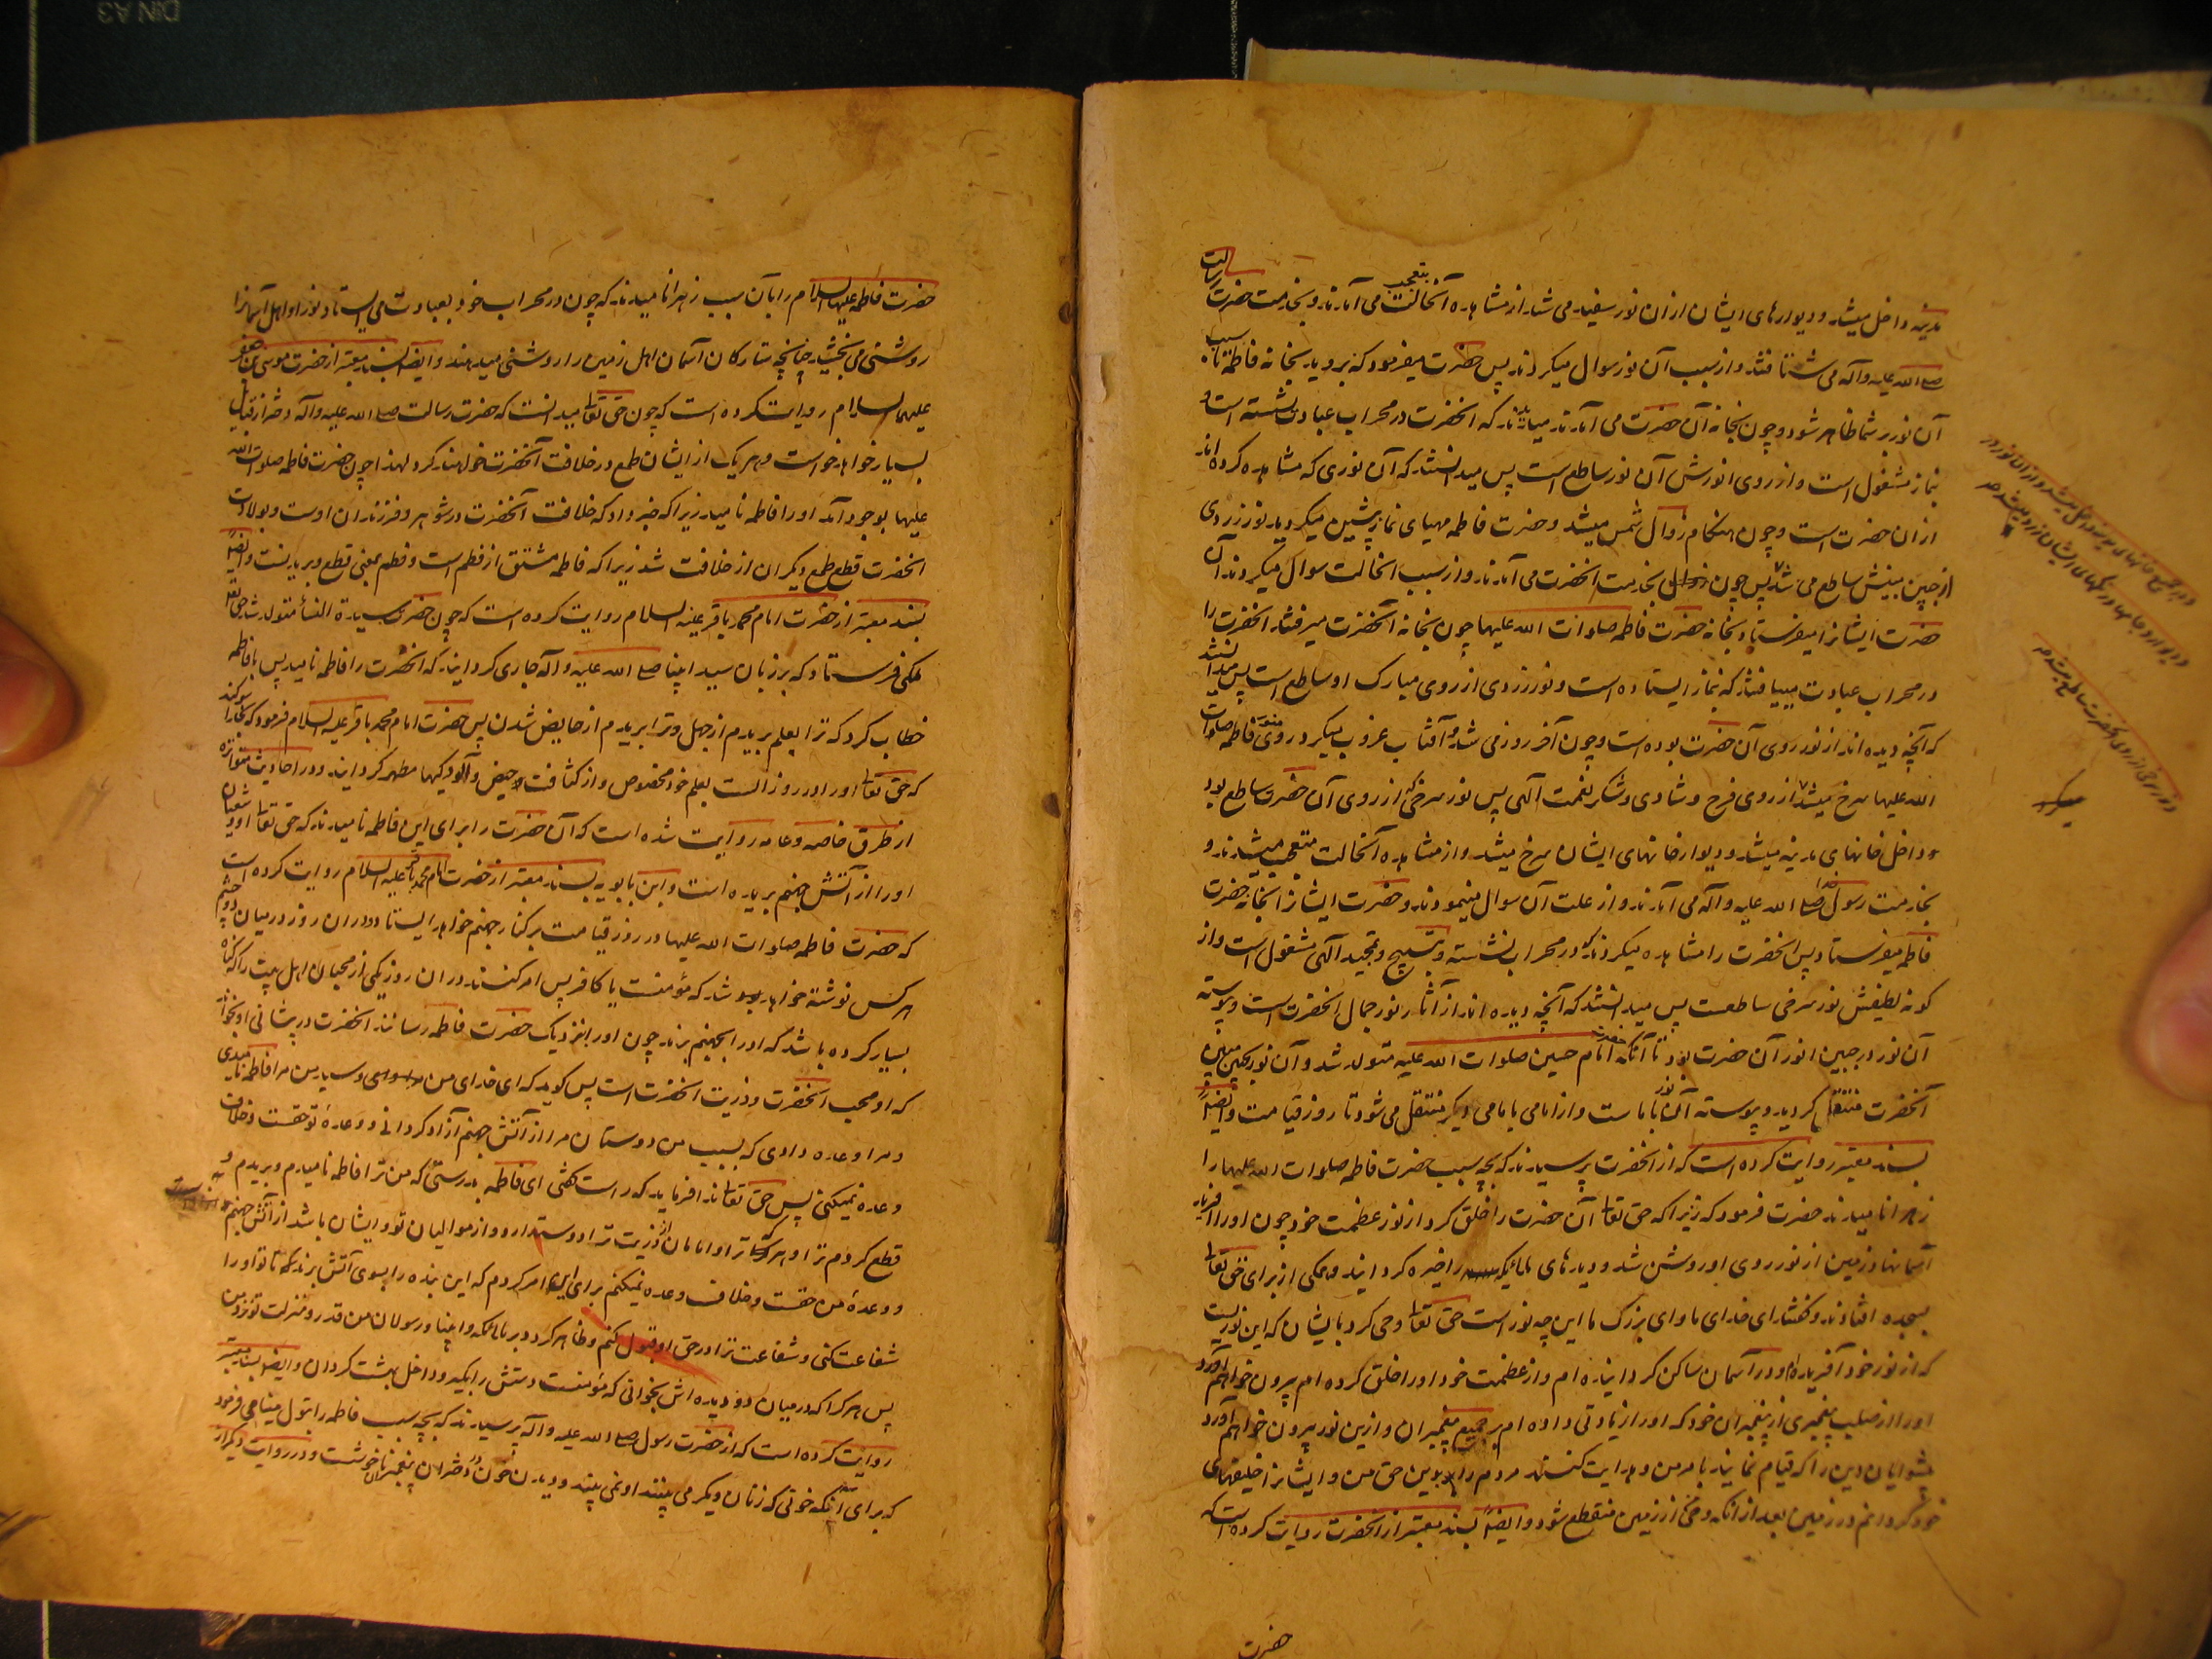 مدینه داخل میشد و دیوارهای ایشان ازان نور سفید می شد از مشاهده آنحالت بتعجب می آمدند و بخدمت حضرت رسالت
صلی الله علیه وآله می شتافتند و از سبب آن نور سوال میکردند پس حضرت میفرمود که بروید بخانه فاطمه تا سبب
آن نور بر شما ظاهر شود و چون بخانه آن حضرت می آمدند میدیدند که انحضرت در محراب عبادت نشسته است و
نماز مشغول است و از روی انورش آن نور ساطع است پس میدانستند که آن نوری که مشاهده کرده اند
ازان حضرت است و چون هنکام زوال شمس میشد و حضرت فاطمه مهیای نماز پیشین میکردید نور زردی
از جبین مبینش ساطع می شد پس چون بخدمت انحضرت می آمدند و از سبب انحالت سوال میکردند آن
حضرت ایشانرا میفرستاد بخانه حضرت فاطمه صلوات الله علیها چون بخانه آنحضرت میرفتند انحضرت را
در محراب عبادت مییافتند که بنماز ایستاده است و نور زردی از روی مبارک او ساطع است پس میدانستند
که آنچه دیده اند از نور روی آن حضرت بوده است و چون آخر روز می شد و آفتاب غروب میکرد روی منور فاطمه صلوات
الله علیها سرخ میشد از روی فرح و شادی و شکر نعمت الهی پس نور سرخی از روی آن حضرت ساطع بود
و داخل خانهای مدینه میشد و دیوار خانهای ایشان سرخ میشد و از مشاهده آنحالت متعجب میشدند و
بخدمت رسول خدا صلی الله علیه وآله می آمدند و از علت آن سوال مینمودند و حضرت ایشانرا بخانه حضرت
فاطمه میفرستاد پس انحضرت را مشاهده میکردند که در محراب نشسته و بتسبیح و تمجید الهی مشغول است و از
کونه لطیفش نور سرخی ساطعست پس میدانستند که آنچه دیده اند از آثار نور جمال انحضرت است و پیوسته
آن نور در جبین انور آن حضرت بود تا آنکه حضرت امام حسین صلوات الله علیه متولد شد و آن نور بجبین مبین
آنحضرت منتقل کردید و پیوسته آن نور با ماست و از امامی بامامی دیکر منتقل می شود تا روز قیامت وایضاً
بسند معتبر روایت کرده است که از انحضرت پرسیدند که بچه سبب حضرت فاطمه صلوات الله علیها را
زهرا نامیدند حضرت فرمود که زیرا که حق تعالی آن حضرت را خلق کرد از نور عظمت خود چون اورا افرید
آسمانها و زمین از نور روی او روشن شد و دیدهای ملائکه را خیره کردانید و همکی از برای حق تعالی
بسجده افتادند و کفتند ای خدای ما و ای بزرک ما این چه نور است حق تعالی وحی کرد بایشان که این نوریست
که از نور خود آفریده ام و در آسمان ساکن کردانیده ام و از عظمت خود اورا خلق کرده ام بیرون خواهم آورد
اورا از صلب پیغمبری از پیغمبران خود که اورا زیادتی داده ام بر جمیع پیغمبران و ازین نور بیرون خواهم آورد
پیشوایان دین را که قیام نمایند بامر من و هدایت کنند مردم را بدین حق من و ایشانرا خلیفهای
خود کردانم در زمین بعد از انکه وحی از زمین منقطع شود وایضاً بسند معتبر از انحضرت روایت کرده است که
حضرت
حضرت فاطمه علیها السلام را بآن سبب زهرا نامیدند که چون در محراب خود بعبادت می ایستاد نور او اهل آسمانرا
روشنی می بخشید چنانچه ستارکان آسمان اهل زمین را روشنی میدهند وایضاً بسند معتبر از حضرت موسی بن جعفر
علیهما السلام روایت کرده است که چون حق تعالی میدانست که حضرت رسالت صلی الله علیه وآله دختر از قبایل
بسیار خواهد خواست و هر یک از ایشان طمع در خلافت آنحضرت خواهند کرد لهذا چون حضرت فاطمه صلوات الله
علیها بوجود آمد اورا فاطمه نامید زیرا که خبر داد که خلافت آنحضرت در شوهر و فرزندان اوست و بولادت
انحضرت قطع طمع دیکران از خلافت شد زیرا که فاطمه مشتق از فطم است و فطم بمعنی قطع و بریدنست وایضاً
بسند معتبر از حضرت امام محمد باقر علیه السلام روایت کرده است که چون حضرت سیدة النساء متولد شد حق تعالی
ملکی فرستاد که بر زبان سید انبیا صلی الله علیه وآله جاری کردانید که انحضرت را فاطمه نامید پس بافاطمه
خطاب کرد که ترا بعلم بریدم از جهل و ترا بریدم از حایض شدن پس حضرت امام محمد باقر علیه السلام فرمود که بخدا سوکند
که حق تعالی اورا در روز الست بعلم خود مخصوص و از کثافت حیض و آلودکیها مطهر کردانید و در احادیث متواتره
از طرق خاصه و عامه روایت شده است که آن حضرت را برای این فاطمه نامیدند که حق تعالی او و شیعیان
اورا از آتش جهنم بریده است و ابن بابویه بسند معتبر از حضرت امام محمد باقر علیه السلام روایت کرده است
که حضرت فاطمه صلوات الله علیها در روز قیامت بر کنار جهنم خواهد ایستاد و دران روز در میان دو چشم
هر کس نوشته خواهد شد که مؤمنست یا کافر پس امر کنند دران روز یکی از محبان اهل بیت را که کناه
بسیار کرده باشد که اورا بجهنم برند چون اورا بنزدیک حضرت فاطمه رسانند انحضرت در پیشانی او بخواند
که او محب انحضرت و ذریت انحضرت است پس کوید که ای خدای من و سید من مرا فاطمه نامیدی
و مرا وعده دادی که بسبب من دوستان مرا از آتش جهنم آزاد کردانی و وعده تو حقست و خلاف
وعده نمیکنی پس حق تعالی ندا فرماید که راست کفتی ای فاطمه بدرستی که من ترا فاطمه نامیدم و بریدم و
قطع کردم ترا و هر که ترا و امامان از ذریت ترا دوست دارد و از موالیان تو و ایشان باشد از آتش جهنم
و وعده من حقست و خلاف وعده نمیکنم برای این امر کردم که این بنده را بسوی آتش برند که تا تو اورا
شفاعت کنی و شفاعت ترا در حق او قبول کنم و ظاهر کردد بر ملائکه و انبیا و رسولان من قدر و منزلت تو نزد من
پس هر کرا که در میان دو دیده اش بخوانی که مؤمنست دستش را بکیر و داخل بهشت کردان وایضاً بسند معتبر
روایت کرده است که از حضرت رسول صلی الله علیه وآله پرسیدند که بچه سبب فاطمه را بتول مینامی فرمود
که برای آنکه خونی که زنان دیکر می بینند او نمی بیند و دیدن خون در دختران پیغمبران ناخوشست و در روایت دیکر از